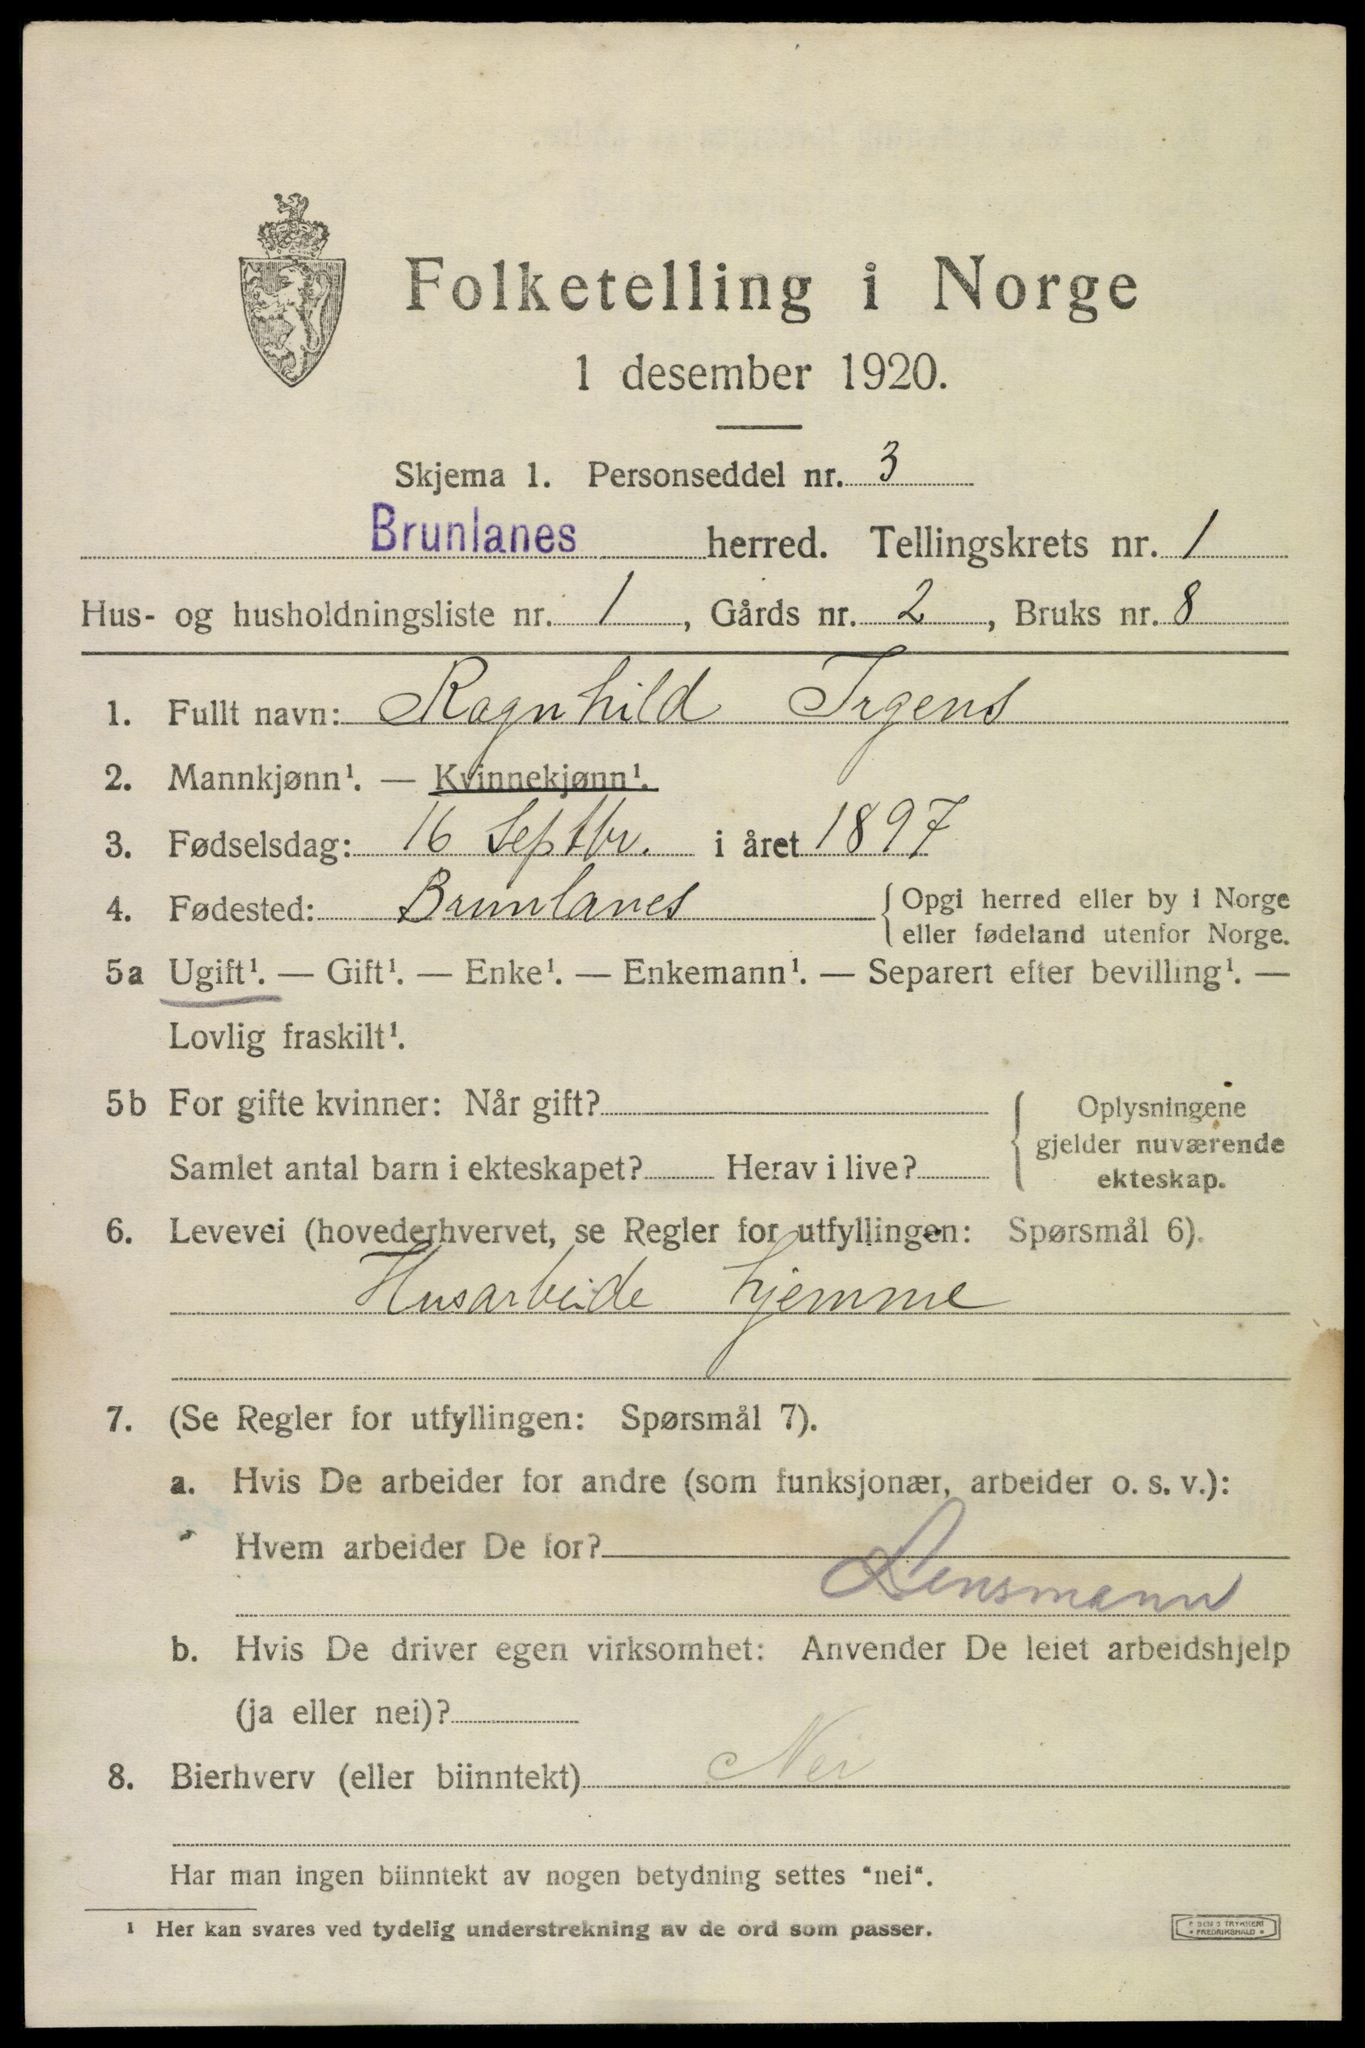 Folketelling i Norge
1 desember 1920.
Skjema 1. Personseddel nr. 3
Brunlanes herred. Tellingskrets nr. 1
Hus- og husholdningsliste nr. 1, Gårds nr. 2, Bruks nr. 8
1. Fullt navn: Ragnhild Irgens
2. Mannkjønn¹. — Kvinnekjønn¹.
3. Fødselsdag: 16 Septbr. i året 1897
4. Fødested: Brunlanes { Opgi herred eller by i Norge
eller fødeland utenfor Norge.
5a Ugift¹. — Gift¹. — Enke¹. — Enkemann¹. — Separert efter bevilling¹. —
Lovlig fraskilt¹.
5b For gifte kvinner: Når gift? { Oplysningene
gjelder nuværende
Samlet antal barn i ekteskapet? Herav i live? ekteskap.
6. Levevei (hovederhvervet, se Regler for utfyllingen: Spørsmål 6).
Husarbeide hjemme
7. (Se Regler for utfyllingen: Spørsmål 7).
a. Hvis De arbeider for andre (som funksjonær, arbeider o. s. v.):
Hvem arbeider De for?
Lensmann
b. Hvis De driver egen virksomhet: Anvender De leiet arbeidshjelp
(ja eller nei)?
8. Bierhverv (eller biinntekt) Nei
Har man ingen biinntekt av nogen betydning settes "nei".
¹ Her kan svares ved tydelig understrekning av de ord som passer.
TRYKKERI
FREDRIKSHALD